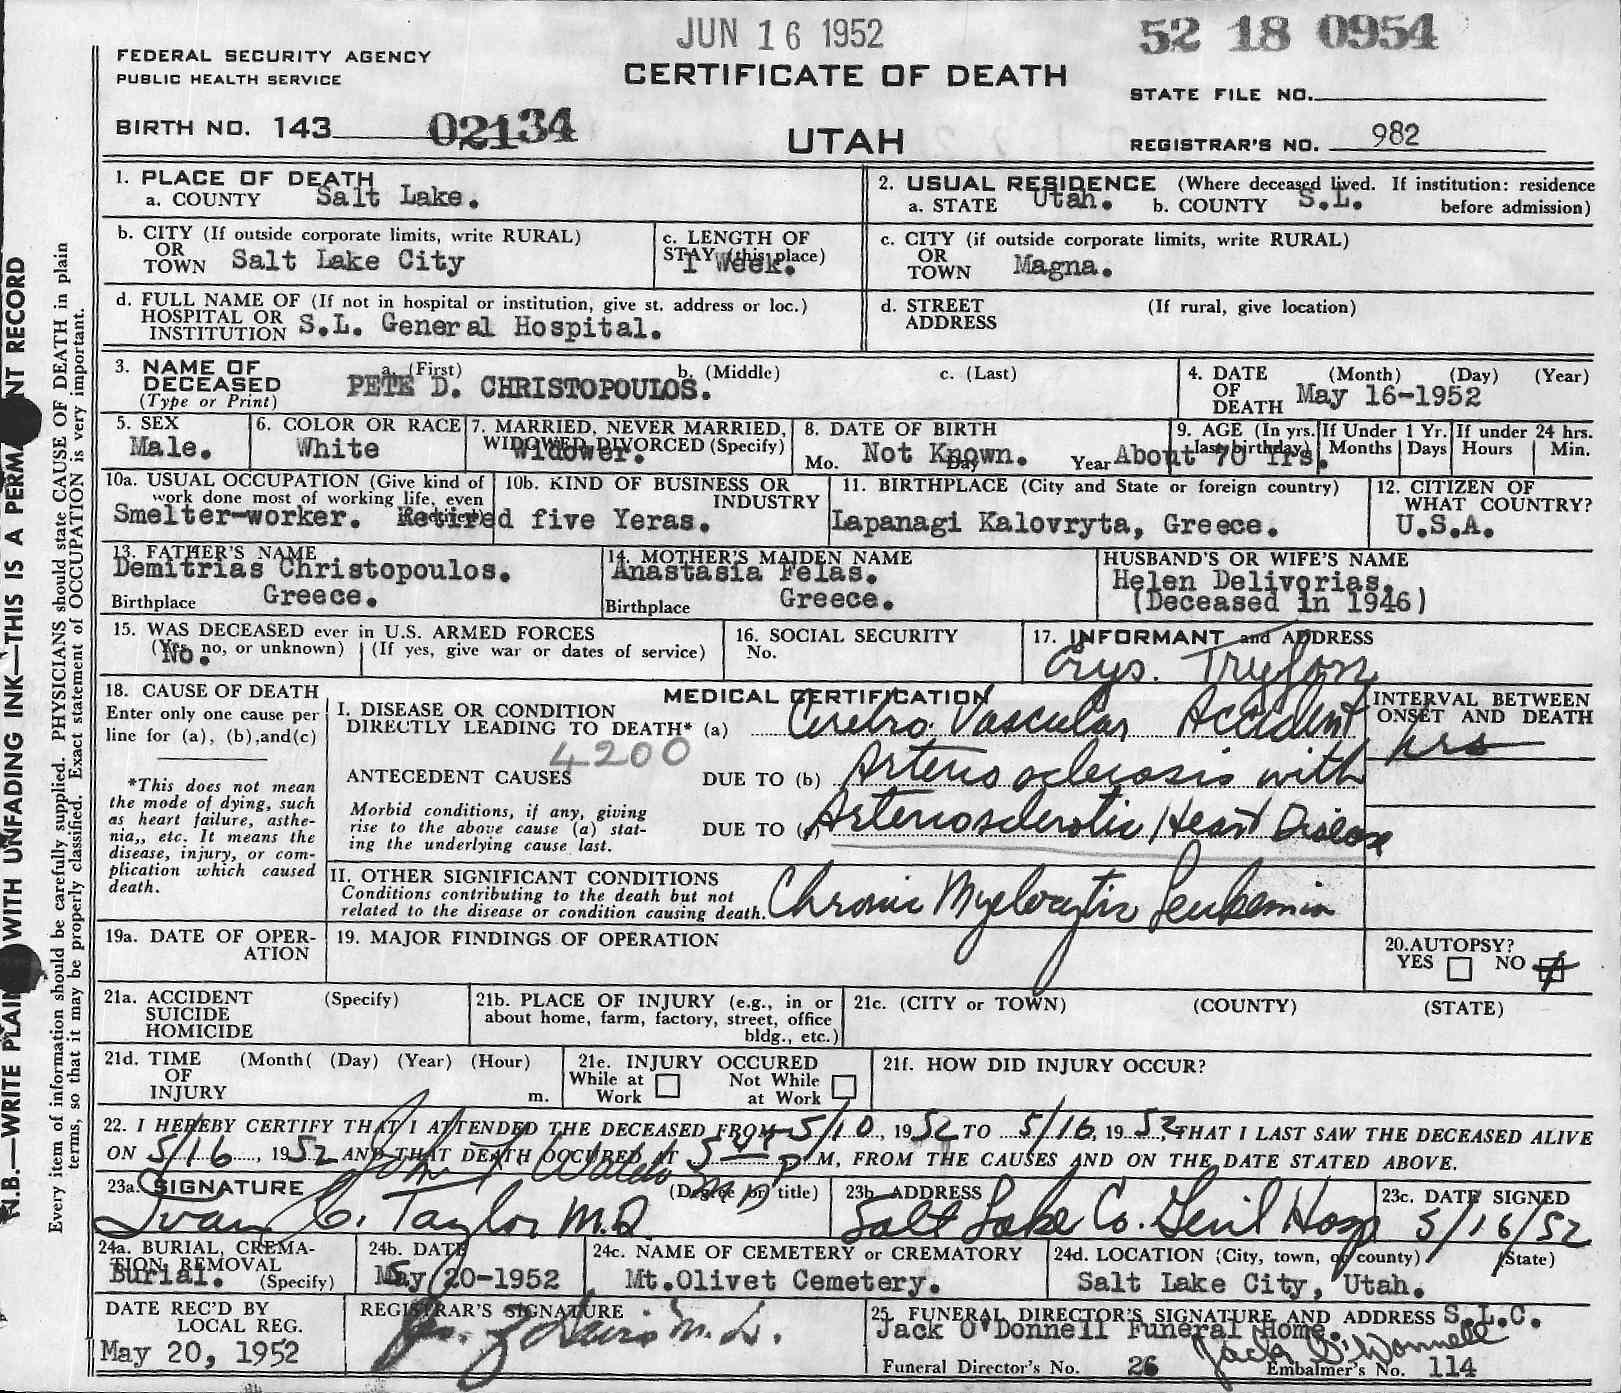 JUN 16 1952
52 18 0954
FEDERAL SECURITY AGENCY
PUBLIC HEALTH SERVICE
CERTIFICATE OF DEATH
STATE FILE NO.
BIRTH NO. 143 02134
UTAH
REGISTRAR'S NO. 982
1. PLACE OF DEATH
a. COUNTY Salt Lake.
2. USUAL RESIDENCE (Where deceased lived. If institution: residence before admission)
a. STATE Utah. b. COUNTY S.L.
b. CITY (If outside corporate limits, write RURAL)
OR
TOWN Salt Lake City
c. LENGTH OF
STAY (this place)
1 Week.
c. CITY (if outside corporate limits, write RURAL)
OR
TOWN Magna.
d. FULL NAME OF (If not in hospital or institution, give st. address or loc.)
HOSPITAL OR
INSTITUTION S.L. General Hospital.
d. STREET (If rural, give location)
ADDRESS
3. NAME OF
DECEASED
(Type or Print)
a. (First) b. (Middle) c. (Last)
PETE D. CHRISTOPOULOS.
4. DATE (Month) (Day) (Year)
OF
DEATH May 16-1952
5. SEX
Male.
6. COLOR OR RACE
White
7. MARRIED, NEVER MARRIED,
WIDOWED, DIVORCED (Specify)
Widower.
8. DATE OF BIRTH
Mo. Day Year
Not Known.
9. AGE (In yrs. last birthday)
About 70 Yrs.
If Under 1 Yr.
Months Days
If under 24 hrs.
Hours Min.
10a. USUAL OCCUPATION (Give kind of
work done most of working life, even
Smelter-worker. Retired five Yeras.
10b. KIND OF BUSINESS OR
INDUSTRY
11. BIRTHPLACE (City and State or foreign country)
Lapanagi Kalovryta, Greece.
12. CITIZEN OF
WHAT COUNTRY?
U.S.A.
13. FATHER'S NAME
Demitrias Christopoulos.
Birthplace Greece.
14. MOTHER'S MAIDEN NAME
Anastasia Felas.
Birthplace Greece.
HUSBAND'S OR WIFE'S NAME
Helen Delivorias.
(Deceased in 1946)
15. WAS DECEASED ever in U.S. ARMED FORCES
(Yes, no, or unknown) (If yes, give war or dates of service)
No.
16. SOCIAL SECURITY
No.
17. INFORMANT and ADDRESS
18. CAUSE OF DEATH
Enter only one cause per
line for (a), (b),and(c)
*This does not mean
the mode of dying, such
as heart failure, asthe-
nia,, etc. It means the
disease, injury, or com-
plication which caused
death.
MEDICAL CERTIFICATION
I. DISEASE OR CONDITION
DIRECTLY LEADING TO DEATH* (a) Cerebro Vascular Accident
4200
ANTECEDENT CAUSES DUE TO (b) Arteriosclerosis with
Morbid conditions, if any, giving
rise to the above cause (a) stat-
ing the underlying cause last.
DUE TO Arteriosclerotic Heart Disease
INTERVAL BETWEEN
ONSET AND DEATH
hrs
II. OTHER SIGNIFICANT CONDITIONS
Conditions contributing to the death but not
related to the disease or condition causing death.
Chronic Myelocytic Leukemia
19a. DATE OF OPER-
ATION
19. MAJOR FINDINGS OF OPERATION
20.AUTOPSY?
YES NO
21a. ACCIDENT (Specify)
SUICIDE
HOMICIDE
21b. PLACE OF INJURY (e.g., in or
about home, farm, factory, street, office
bldg., etc.)
21c. (CITY or TOWN) (COUNTY) (STATE)
21d. TIME (Month( (Day) (Year) (Hour)
OF
INJURY m.
21e. INJURY OCCURED
While at Work
Not While at Work
21f. HOW DID INJURY OCCUR?
22. I HEREBY CERTIFY THAT I ATTENDED THE DECEASED FROM 5/10, 1952 TO 5/16, 1952, THAT I LAST SAW THE DECEASED ALIVE
ON 5/16, 1952 AND THAT DEATH OCCURED AT P M, FROM THE CAUSES AND ON THE DATE STATED ABOVE.
23a. SIGNATURE (Degree or title)
Ivan C. Taylor M.D.
23b. ADDRESS
Salt Lake Co. Genl Hosp
23c. DATE SIGNED
5/16/52
24a. BURIAL, CREMA-
TION, REMOVAL
(Specify)
Burial.
24b. DATE
May 20-1952
24c. NAME OF CEMETERY or CREMATORY
Mt.Olivet Cemetery.
24d. LOCATION (City, town, or county) (State)
Salt Lake City, Utah.
DATE REC'D BY
LOCAL REG.
May 20, 1952
REGISTRAR'S SIGNATURE
25. FUNERAL DIRECTOR'S SIGNATURE AND ADDRESS S.L.C.
Jack O'Donnell Funeral Home.
Jack O'Donnell
Funeral Director's No. 26 Embalmer's No. 114
N.B.—WRITE PLAIN WITH UNFADING INK—THIS IS A PERMA NT RECORD
Every item of information should be carefully supplied. PHYSICIANS should state CAUSE OF DEATH in plain
terms, so that it may be properly classified. Exact statement of OCCUPATION is very important.